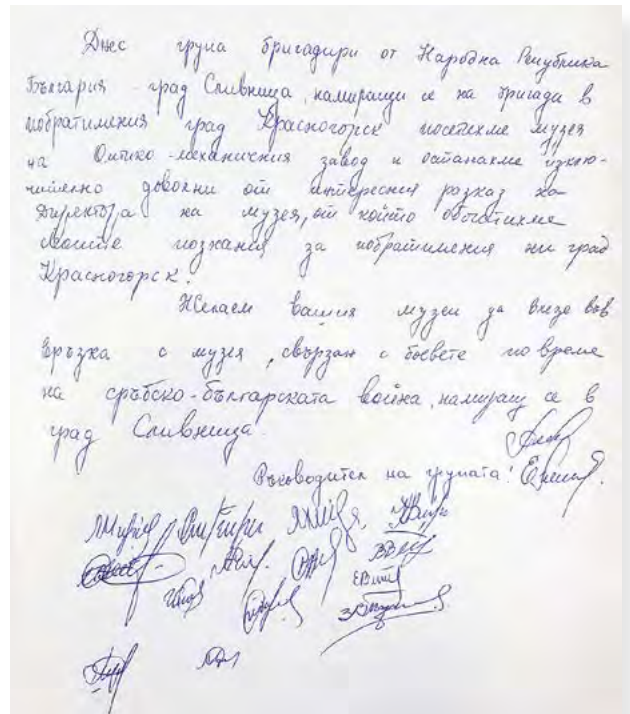 Днес група бригадири от Народна Република
България - град Сливница, намиращи се на бригада в
побратимения град Красногорск посетихме музея
на Оптико-механичния завод и останахме изклю-
чително доволни от интересния разказ на
директора на музея, от който обогатихме
своите познания за побратимения ни град
Красногорск.
Желаем вашия музей да влезе във
връзка с музея, свързан с боевете по време
на сръбско-българската война, намиращ се в
град Сливница.
Ръководител на групата: